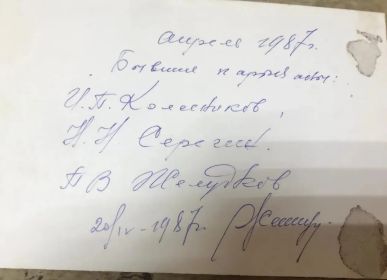 апреля 1987г.
Бывшие партизаны:
И.П. Колесников,
Н.Н Серегин.
П В Желудков
20/IV-1987г.